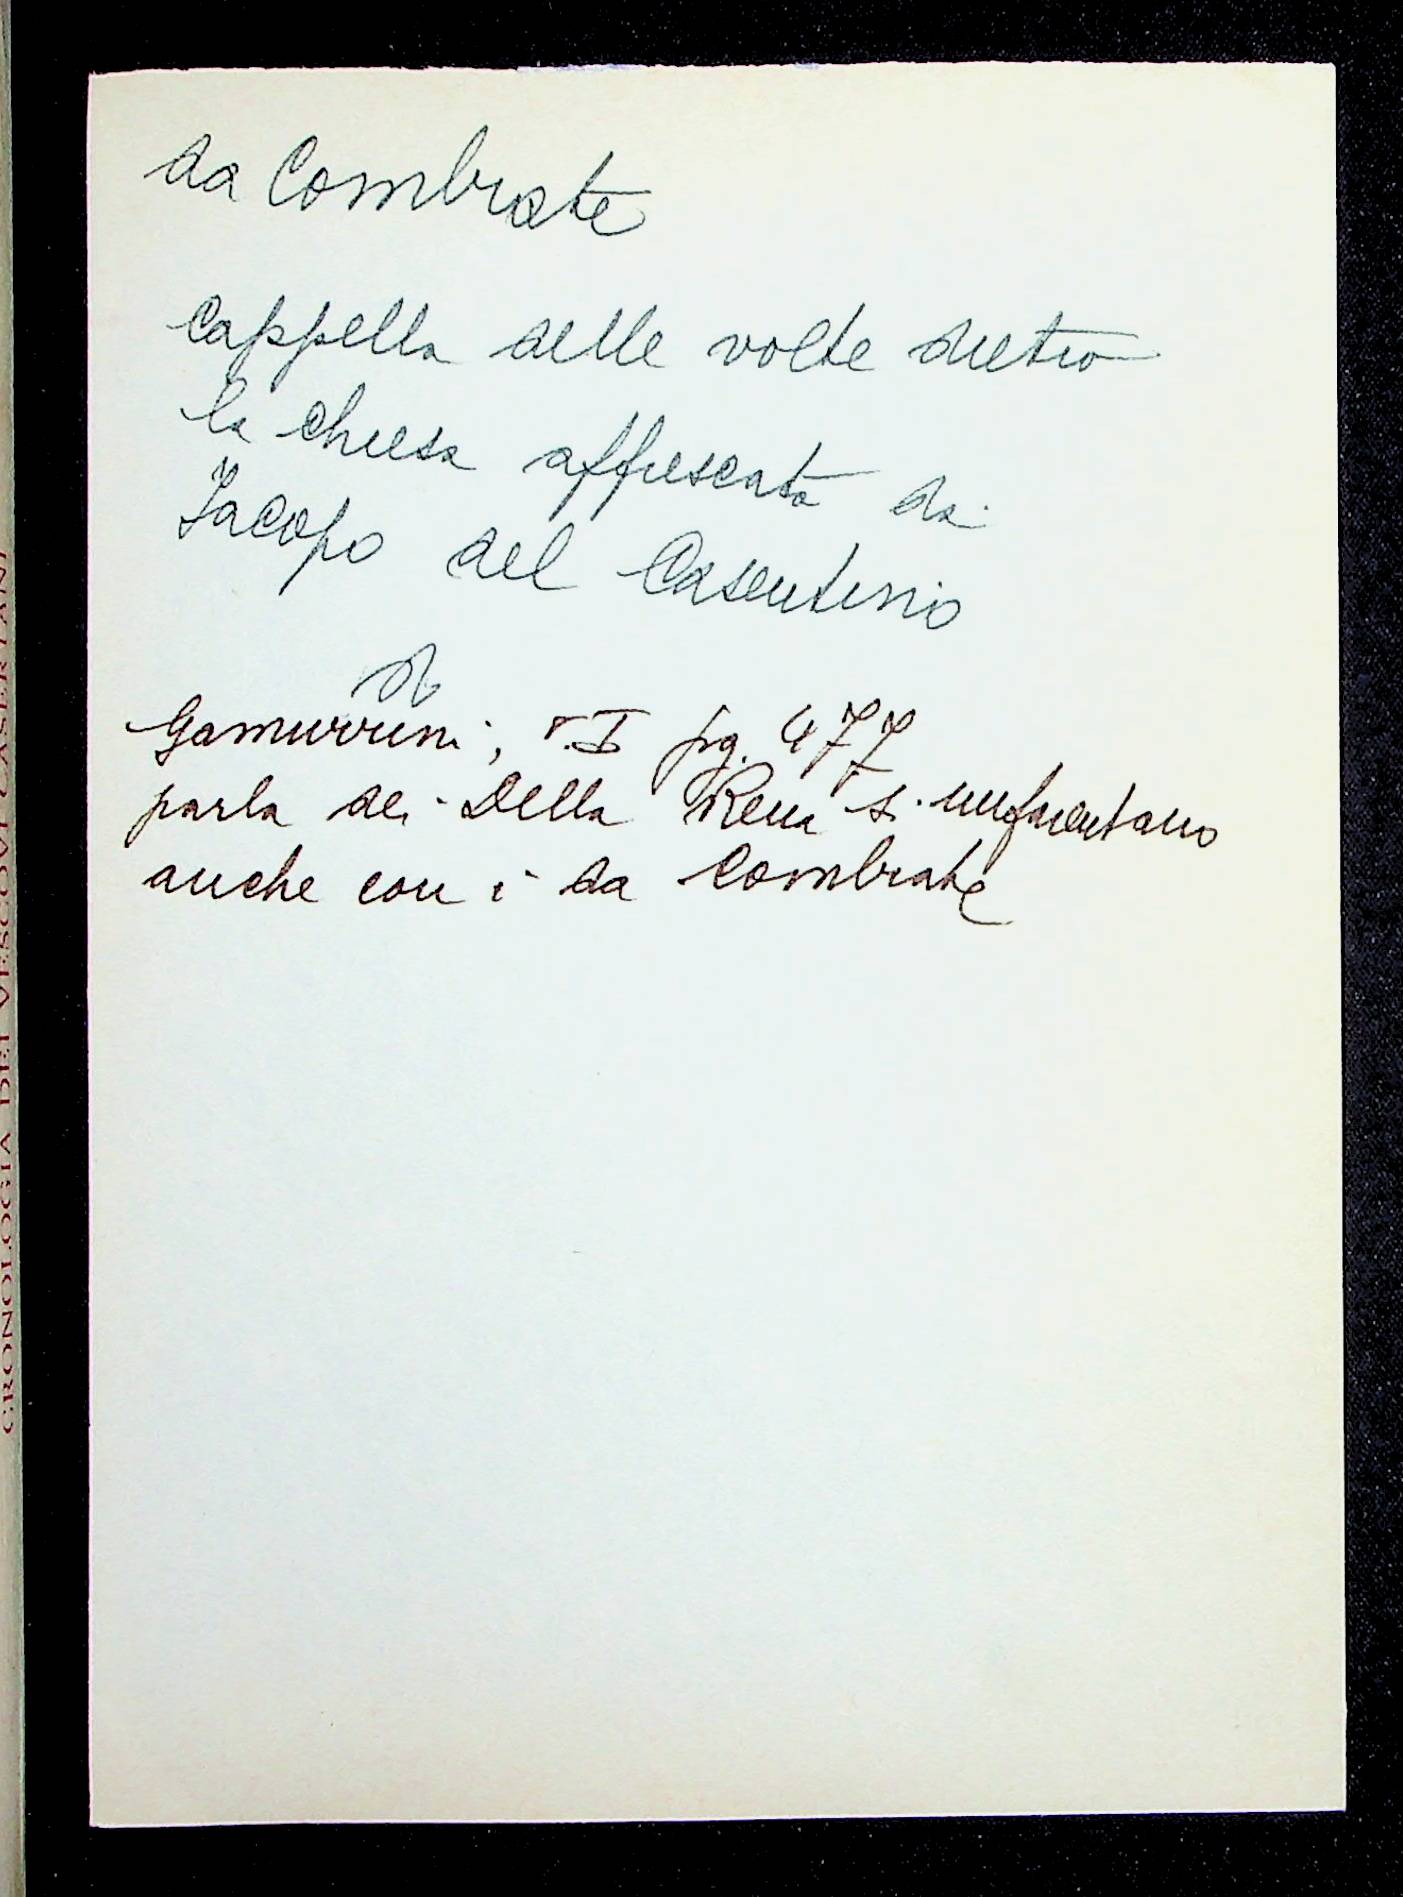 da Combrate
Cappella delle volte dietro
la chiesa affrescata da
Jacopo del Casentino
Gamurrini, v. I pg. 477
parla dei Della Rena s'imparentano
anche con i da Combrate
CRONOLOGIA DEI VESCOVI CASERTANI